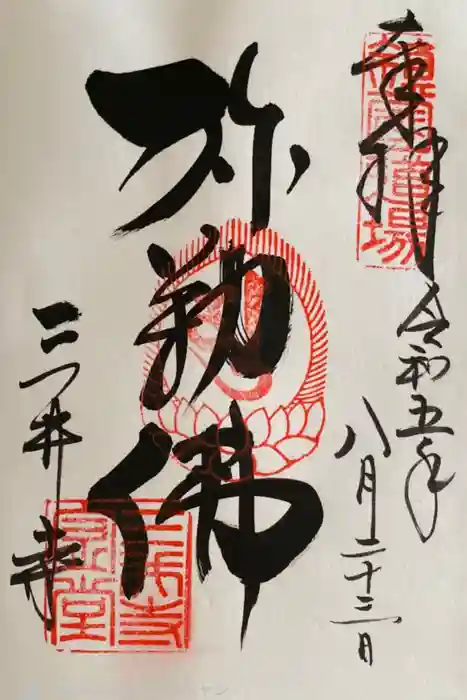 奉拝
令和五年
八月二十三日
弥勒佛
三井寺
三井寺
金堂